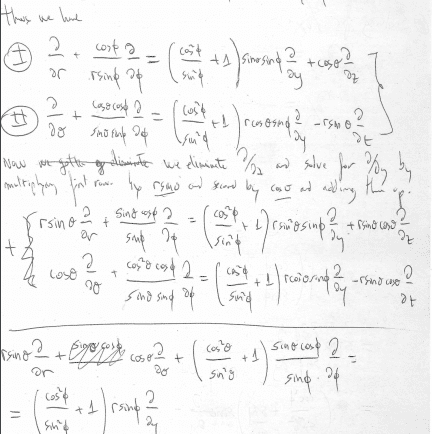 thus we have
(I) ∂/∂r + cosφ/(r sinφ) ∂/∂φ = (cos²φ/sin²φ + 1) sinθ sinφ ∂/∂y + cosθ ∂/∂z
(II) ∂/∂θ + cosθ cosφ/(sinθ sinφ) ∂/∂φ = (cos²φ/sin²φ + 1) r cosθ sinφ ∂/∂y − r sinθ ∂/∂z
Now we eliminate ∂/∂z and solve for ∂/∂y by
multiplying first row by r sinθ and second by cosθ and adding them up.
+ { r sinθ ∂/∂r + sinθ cosφ/sinφ ∂/∂φ = (cos²φ/sin²φ + 1) r sin²θ sinφ ∂/∂y + r sinθ cosθ ∂/∂z
cosθ ∂/∂θ + cos²θ cosφ/(sinθ sinφ) ∂/∂φ = (cos²φ/sin²φ + 1) r cos²θ sinφ ∂/∂y − r sinθ cosθ ∂/∂z
r sinθ ∂/∂r + cosθ ∂/∂θ + (cos²θ/sin²θ + 1) sinθ cosφ/sinφ ∂/∂φ =
= (cos²φ/sin²φ + 1) r sinφ ∂/∂y